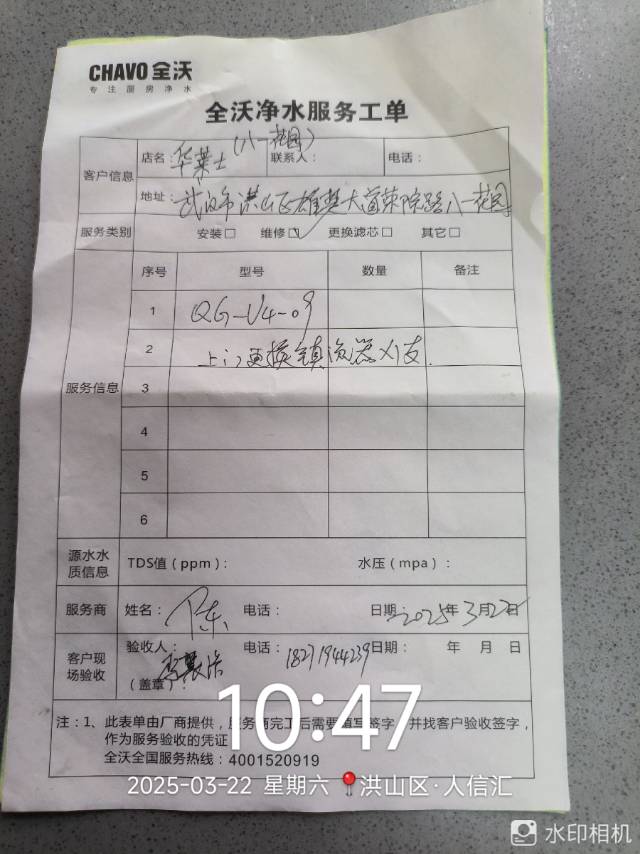 CHAVO 全沃
专注厨房净水
全沃净水服务工单
客户信息 店名：华莱士（八一花园） 联系人： 电话：
地址：武汉市洪山区雄楚大道东院路八一花园
服务类别 安装□ 维修☑ 更换滤芯□ 其它□
服务信息 序号 型号 数量 备注
1 QG-U4-09
2 上门更换镇流器X1支.
3
4
5
6
源水水质信息 TDS值（ppm）： 水压（mpa）：
服务商 姓名：陈 电话： 日期：2025年3月22日
客户现场验收 验收人： 电话：18271944239 日期： 年 月 日
（盖章）：
注：1、此表单由厂商提供，服务商完工后需要填写签字，并找客户验收签字，
作为服务验收的凭证
全沃全国服务热线：4001520919
10:47
2025-03-22 星期六 洪山区·人信汇
水印相机